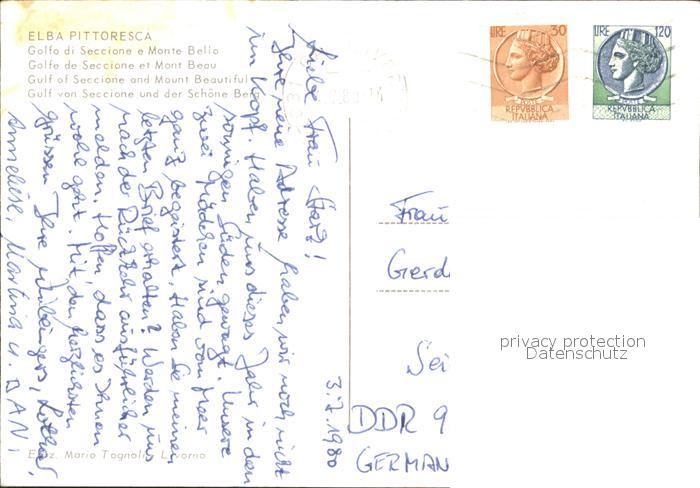 ELBA PITTORESCA
Golfo di Seccione e Monte Bello
Golfe de Seccione et Mont Beau
Gulf of Seccione and Mount Beautiful
Gulf von Seccione und der Schöne Berg
LIRE 30
POSTE
REPVBBLICA
ITALIANA
LIRE 120
POSTE
REPVBBLICA
ITALIANA
3.7.1980
Liebe Frau
Ihre neue Adresse haben wir noch nicht
im Kopf. Haben uns dieses Jahr in den
sonnigen Süden gewagt. Unsere
zwei Mädchen sind vom Meer
ganz begeistert. Haben Sie meinen
letzten Brief erhalten? Werden uns
nach der Rückkehr ausführlicher
melden. Hoffen, dass es Ihnen
wohl geht. Mit den herzlichsten
Grüssen Ihre Lothar,
Anneliese, Martina u. DANI
Frau
Gerd
Sei
DDR 9
GERMAN
privacy protection
Datenschutz
Ediz. Mario Tognolli, Livorno